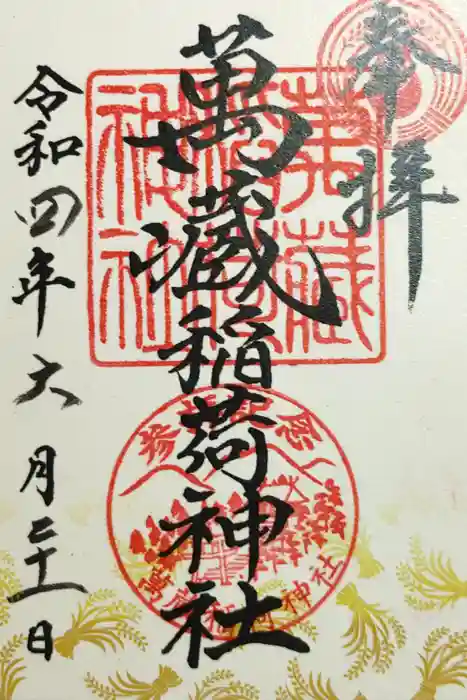 奉拝
萬蔵稲荷神社
令和四年六月二十一日
萬蔵稲荷神社
参拝記念
萬蔵稲荷神社